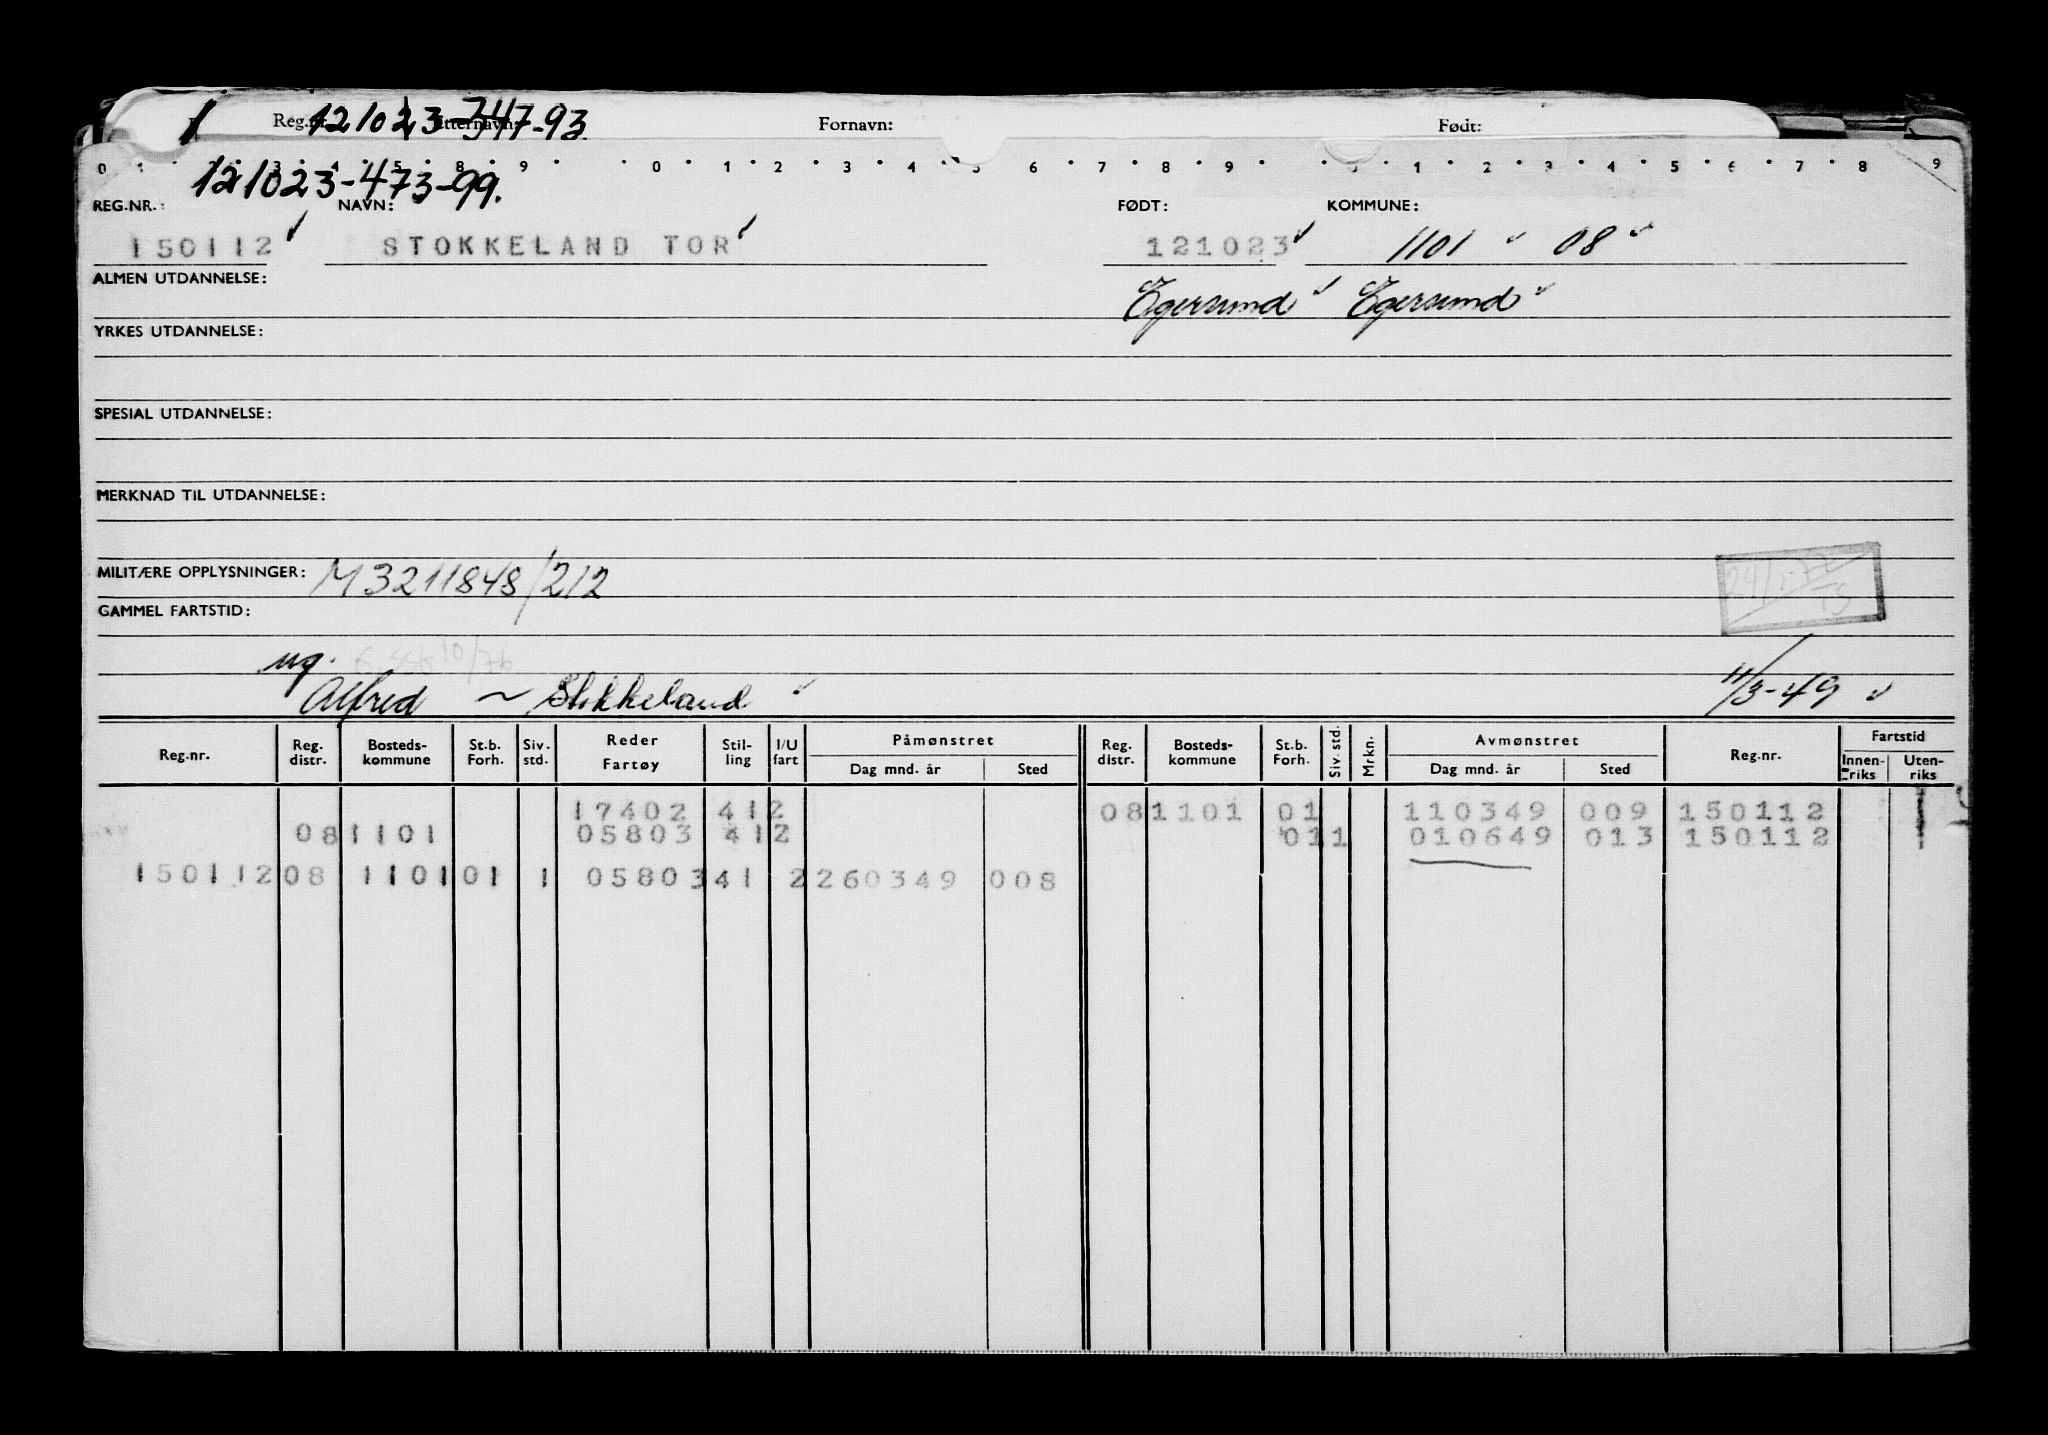 1 Reg.nr. 121023-347-93 Etternavn: Fornavn: Født:
0 1 2 3 4 5 8 9 0 1 2 3 4 5 6 7 8 9 0 1 2 3 4 5 6 7 8 9
121023-473-99.
REG.NR.: NAVN: FØDT: KOMMUNE:
150112 STOKKELAND TOR 121023 1101 08
ALMEN UTDANNELSE: Egersund Egersund
YRKES UTDANNELSE:
SPESIAL UTDANNELSE:
MERKNAD TIL UTDANNELSE:
MILITÆRE OPPLYSNINGER: M3211848/212
GAMMEL FARTSTID:
ug.
Alfred ~ Stokkeland 11/3-49
Reg.nr. Reg. distr. Bosteds-kommune St.b. Forh. Siv. std. Reder Fartøy Stil-ling I/U fart Påmønstret Dag mnd. år Sted Reg. distr. Bosteds-kommune St.b. Forh. Siv. std. Mrkn. Avmønstret Dag mnd. år Sted Reg.nr. Fartstid Innen-riks Uten-riks
17402 412 081101 01 110349 009 150112
081101 05803 412 011 010649 013 150112
150112 08 1101 01 1 05803 41 2 260349 008